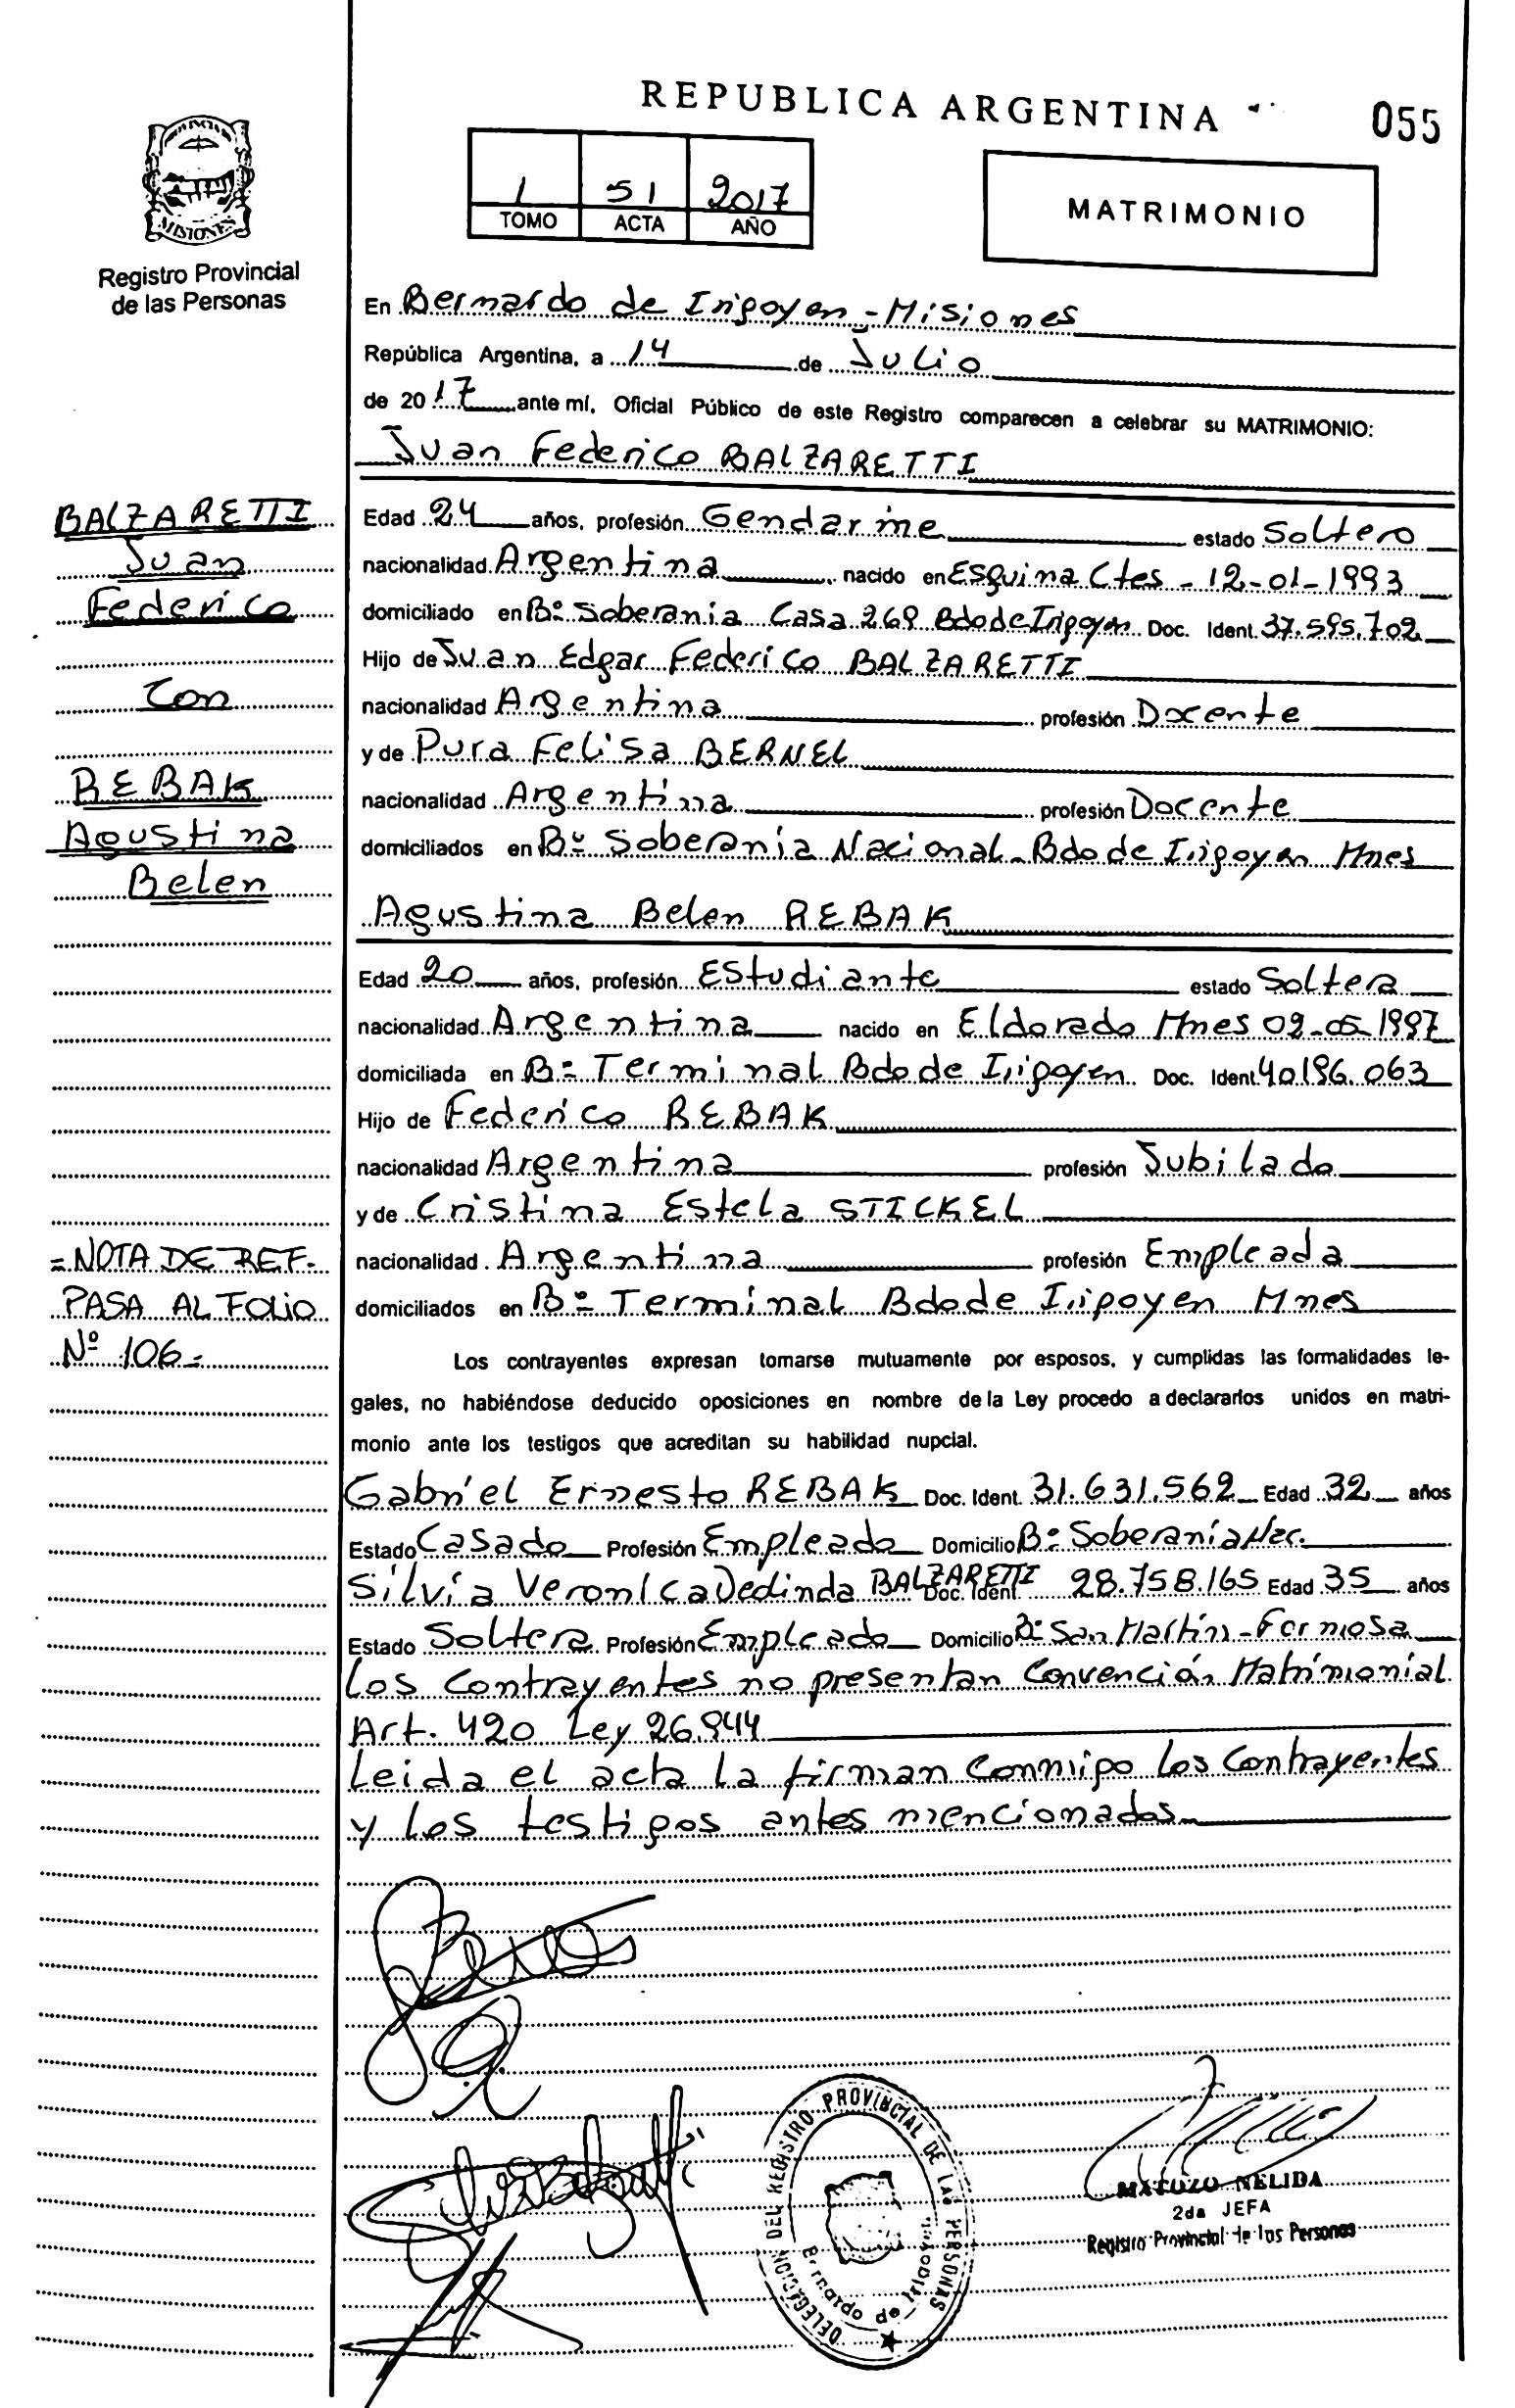 REPUBLICA ARGENTINA
055
1 51 2017
TOMO ACTA AÑO
MATRIMONIO
MISIONES
Registro Provincial
de las Personas
En Bernardo de Irigoyen - Misiones
República Argentina, a 14 de Julio
de 2017 ante mí, Oficial Público de este Registro comparecen a celebrar su MATRIMONIO:
Juan Federico BALZARETTI
Edad 24 años, profesión Gendarme estado Soltero
nacionalidad Argentina nacido en Esquina Ctes - 12-01-1993
domiciliado en Bº Soberanía Casa 269 Bdo de Irigoyen Doc. Ident. 37.595.702
Hijo de Juan Edgar Federico BALZARETTI
nacionalidad Argentina profesión Docente
y de Pura Felisa BERNEL
nacionalidad Argentina profesión Docente
domiciliados en Bº Soberanía Nacional - Bdo de Irigoyen Mnes
Agustina Belen REBAK
Edad 20 años, profesión Estudiante estado Soltera
nacionalidad Argentina nacido en Eldorado Mnes 02-05-1997
domiciliada en Bº Terminal Bdo de Irigoyen Doc. Ident. 40196.063
Hijo de Federico REBAK
nacionalidad Argentina profesión Jubilado
y de Cristina Estela STICKEL
nacionalidad Argentina profesión Empleada
domiciliados en Bº Terminal Bdo de Irigoyen Mnes
Los contrayentes expresan tomarse mutuamente por esposos, y cumplidas las formalidades le-
gales, no habiéndose deducido oposiciones en nombre de la Ley procedo a declararlos unidos en matri-
monio ante los testigos que acreditan su habilidad nupcial.
Gabriel Ernesto REBAK Doc. Ident. 31.631.562 Edad 32 años
Estado Casado Profesión Empleado Domicilio Bº Soberanía Nac.
Silvia Veronica Dedinda BALZARETTI Doc. Ident. 28.758.165 Edad 35 años
Estado Soltera Profesión Empleado Domicilio Bº San Martín - Formosa
Los Contrayentes no presentan Convención Matrimonial
Art. 420 Ley 26.944
Leida el acta la firman Conmigo los Contrayentes
y los testigos antes mencionados
BALZARETTI
Juan
Federico
Con
REBAK
Agustina
Belen
= NOTA DE REF.
PASA AL FOLIO
Nº 106 =
DELEGACION DEL REGISTRO PROVINCIAL DE LAS PERSONAS
Bernardo de Irigoyen
MATOZO NELIDA
2da JEFA
Registro Provincial de las Personas